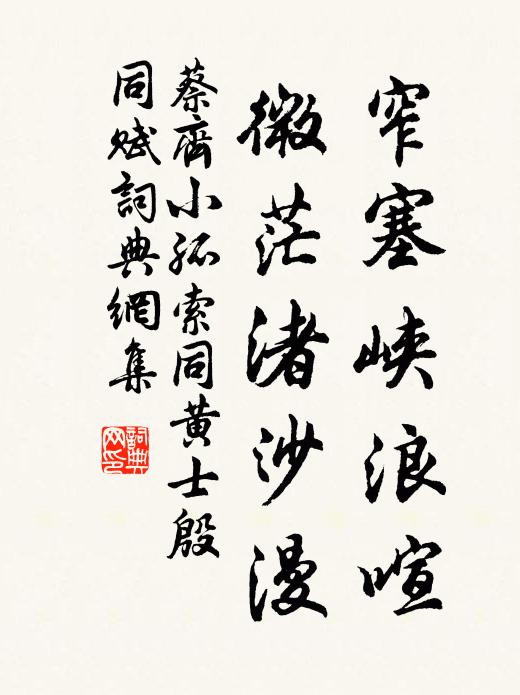 窄塞峽浪喧
微茫渚沙漫
蔡齊小孤索同黃士殷
同賦詞典網集
詞典網印